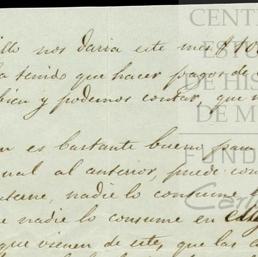 illo nos daria este mes $
ha tenido que hacer pagos de
bien y podemos contar, que
es bastante bueno, para
ual al anterior, puede con
nadie lo consume
e nadie lo consume en
que vienen de este, que las
CENT
ESTU
DE HIS
DE M
FUND
Car